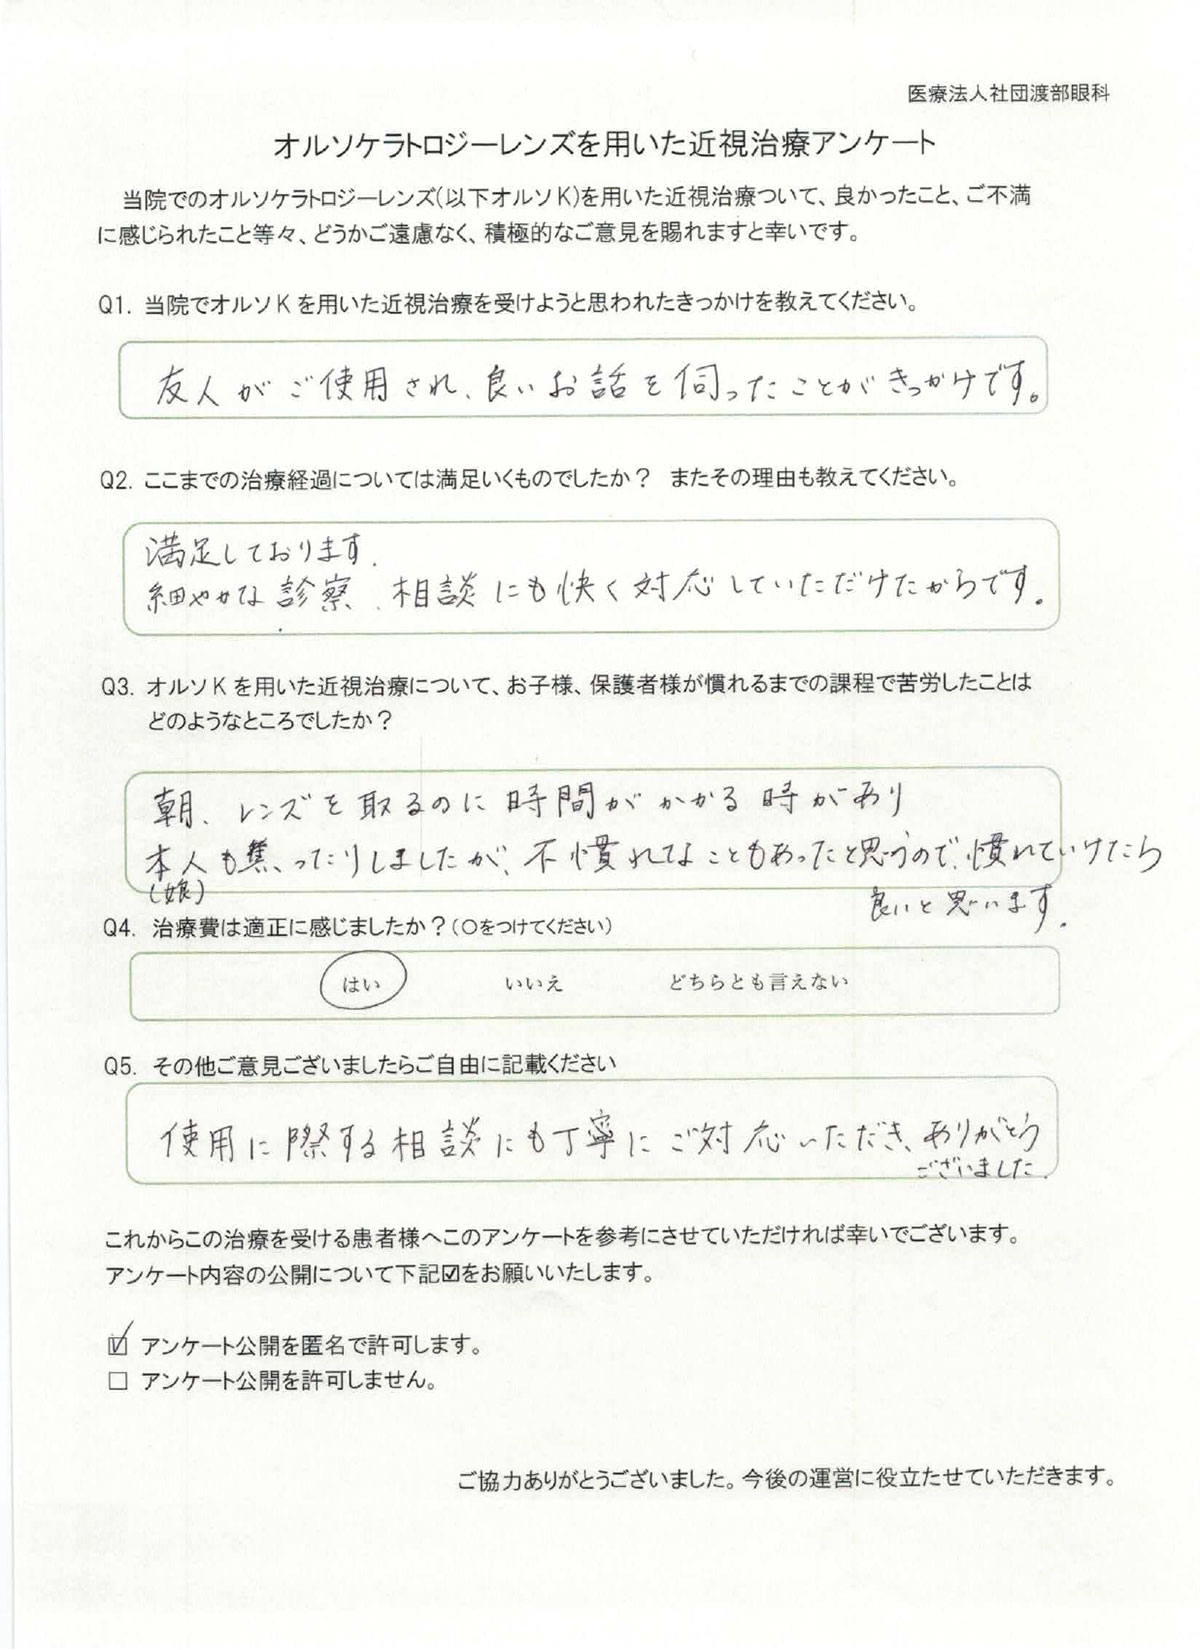 医療法人社団渡部眼科
オルソケラトロジーレンズを用いた近視治療アンケート
当院でのオルソケラトロジーレンズ(以下オルソK)を用いた近視治療ついて、良かったこと、ご不満
に感じられたこと等々、どうかご遠慮なく、積極的なご意見を賜れますと幸いです。
Q1. 当院でオルソKを用いた近視治療を受けようと思われたきっかけを教えてください。
友人がご使用され、良いお話を伺ったことがきっかけです。
Q2. ここまでの治療経過については満足いくものでしたか？ またその理由も教えてください。
満足しております.
細やかな診察、相談にも快く対応していただけたからです.
Q3. オルソKを用いた近視治療について、お子様、保護者様が慣れるまでの課程で苦労したことは
どのようなところでしたか？
朝、レンズを取るのに時間がかかる時があり
本人も焦ったりしましたが、不慣れなこともあったと思うので、慣れていけたら
(娘)
良いと思います.
Q4. 治療費は適正に感じましたか？(○をつけてください)
はい いいえ どちらとも言えない
Q5. その他ご意見ございましたらご自由に記載ください
使用に際する相談にも丁寧にご対応いただき、ありがとう
ございました.
これからこの治療を受ける患者様へこのアンケートを参考にさせていただければ幸いでございます。
アンケート内容の公開について下記☑をお願いいたします。
☑ アンケート公開を匿名で許可します。
□ アンケート公開を許可しません。
ご協力ありがとうございました。今後の運営に役立たせていただきます。